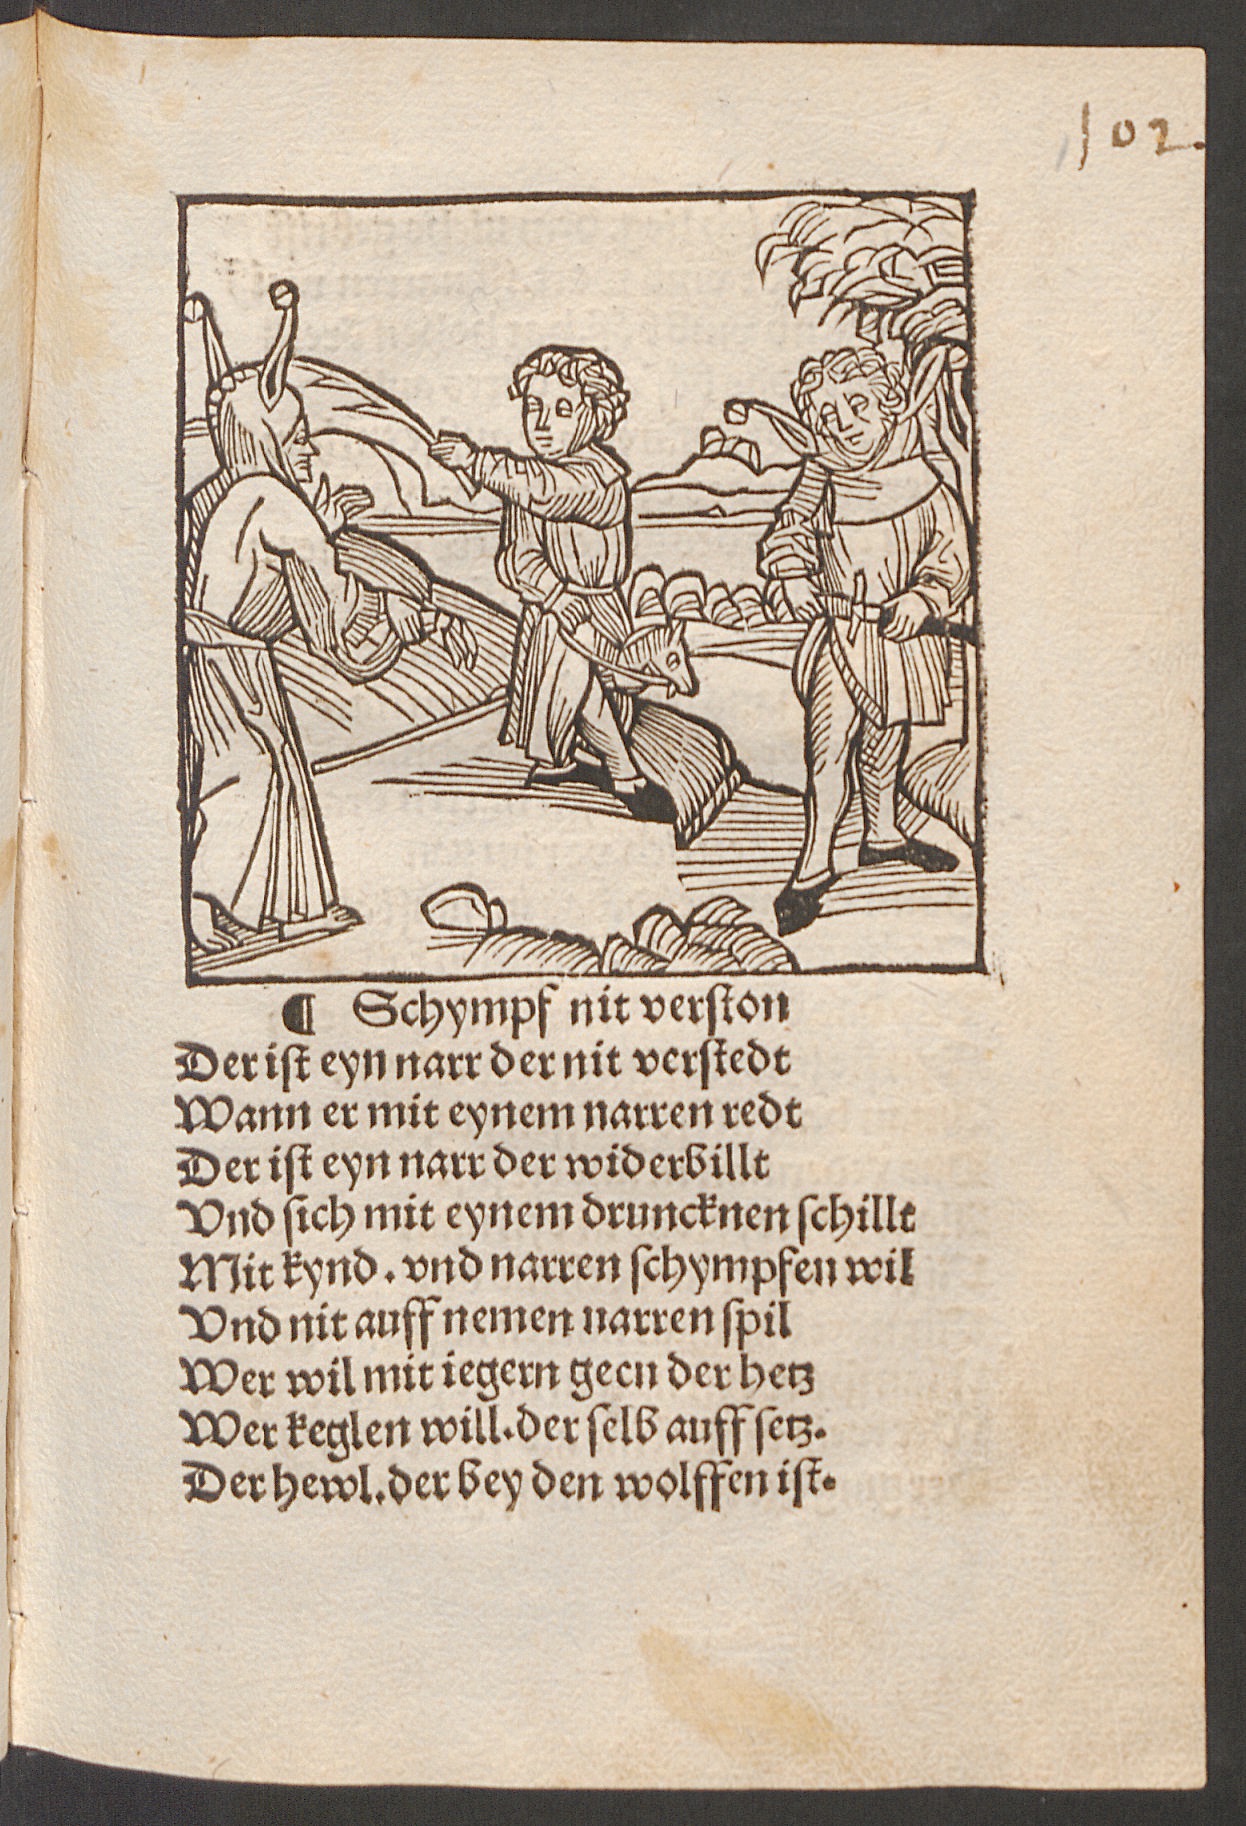 102.
¶ Schympf nit verſton
Der iſt eyn narr der nit verſtedt
Wann er mit eynem narren redt
Der iſt eyn narr der widerbillt
Vnd ſich mit eynem druncknen ſchillt
Mit kynd. vnd narren ſchympfen wil
Vnd nit auff nemen narren ſpil
Wer wil mit iegern geen der hetz
Wer keglen will. der ſelb auff ſetz.
Der hewl. der bey den wolffen iſt.